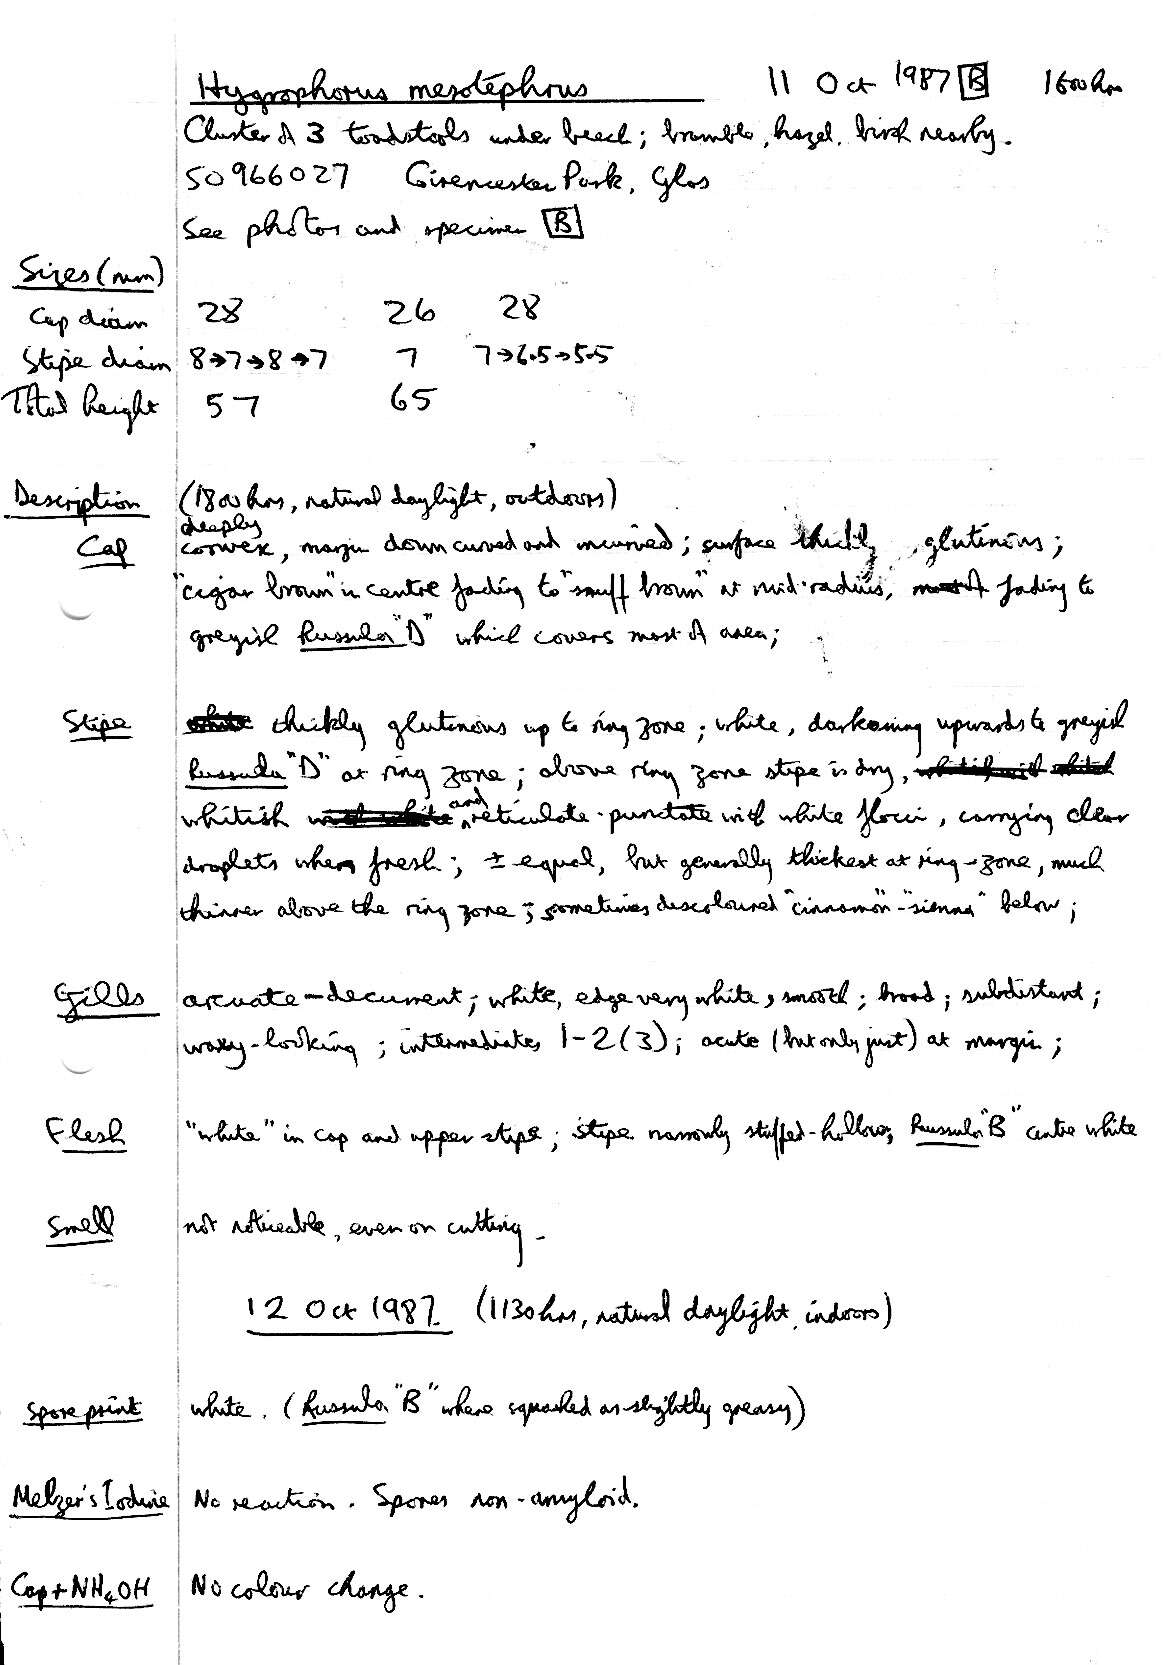 Hygrophorus mesotephrus 11 Oct 1987 B 1600hrs
Cluster of 3 toadstools under beech; bramble, hazel, birch nearby.
SO966027 Cirencester Park, Glos
See photos and specimen B
Sizes (mm)
Cap diam 28 26 28
Stipe diam 8→7→8→7 7 7→6.5→5.5
Total height 57 65
Description (1800hrs, natural daylight, outdoors)
deeply
Cap convex, margin downcurved and incurved; surface thickly glutinous;
"cigar brown" in centre fading to "snuff brown" at mid-radius, fading to
greyish Russula "D" which covers most of area;
Stipe thickly glutinous up to ring zone; white, darkening upwards to greyish
Russula "D" at ring zone; above ring zone stipe is dry,
whitish and reticulate-punctate with white flocci, carrying clear
droplets when fresh; ± equal, but generally thickest at ring-zone, much
thinner above the ring zone; sometimes discoloured "cinnamon"-"sienna" below;
Gills arcuate-decurrent; white, edge very white, smooth; broad; subdistant;
waxy-looking; intermediates 1-2(3); acute (but only just) at margin;
Flesh "white" in cap and upper stipe; stipe narrowly stuffed-hollow, Russula "B" centre white
Smell not noticeable, even on cutting.
12 Oct 1987 (1130hrs, natural daylight, indoors)
Spore print white. (Russula "B" where squashed as slightly greasy)
Melzer's Iodine No reaction. Spores non-amyloid.
Cap + NH4OH No colour change.